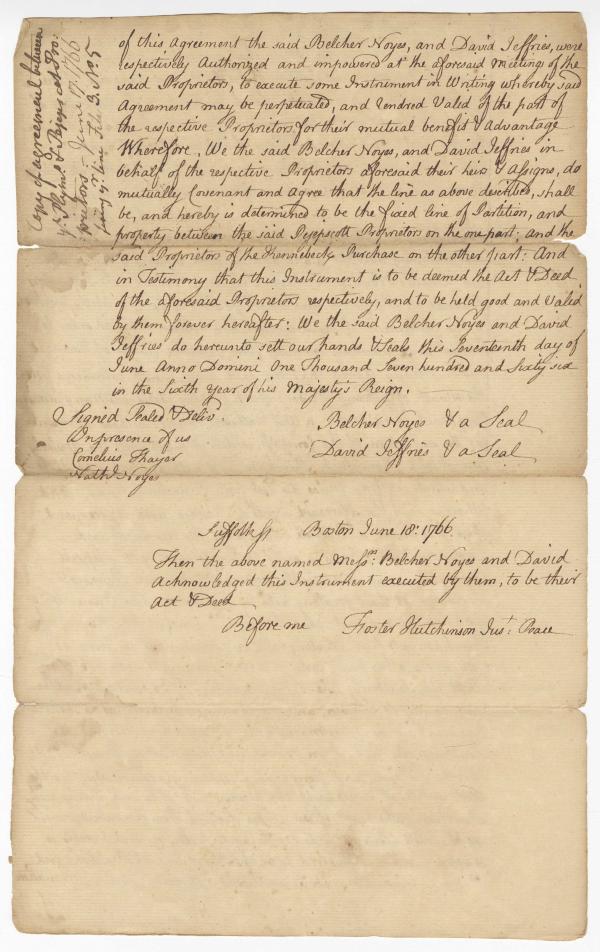 Copy of agreement between
ye Plymo. & Pejepscot Pro:
prietors - June 17. 1766
fixing ye line File 3. No. 5
of this Agreement the said Belcher Noyes, and David Jeffries, were
respectively Authorized and impowered at the aforesaid Meetings of the
said Proprietors, to execute some Instrument in Writing whereby said
Agreement may be perpetuated, and rendred Valid of the part of
the respective Proprietors for their mutual benefit & Advantage
Wherefore, We the said Belcher Noyes, and David Jeffries in
behalf of the respective Proprietors aforesaid their heirs & Assigns, do
mutually Covenant and Agree that the line as above described, shall
be, and hereby is determined to be the fixed line of Partition, and
property between the said Pejepscott Proprietors on the one part; and the
said Proprietors of the Kennebeck Purchase on the other part: And
in Testimony that this Instrument is to be deemed the Act & Deed
of the aforesaid Proprietors respectively, and to be held good and Valid
by them forever hereafter: We the said Belcher Noyes and David
Jeffries do hereunto sett our hands & Seals this Seventeenth day of
June Anno Domini One Thousand Seven hundred and Sixty six
in the Sixth Year of his Majesty's Reign.
Signed Sealed & Delivd.
In presence of us
Cornelius Thayer
Nathl Noyes
Belcher Noyes & a Seal
David Jeffries & a Seal
Suffolk ss Boston June 18: 1766
Then the above named Messrs: Belcher Noyes and David
Acknowledged this Instrument executed by them, to be their
Act & Deed
Before me Foster Hutchinson Just: Peace